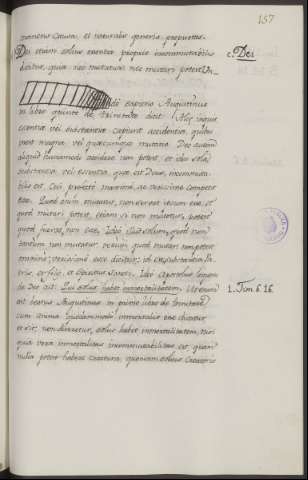 157
generis causa, et naturalis generis propinquitas.
Dei etiam solius essentia proprie incommutabilis
dicitur, quia nec mutatur nec mutari potest. Un-
di exposito Augustinus
in libro quinto de Trinitate dicit: Aliæ inquit
essentiæ vel substantiæ capiunt accidentia, quibus
vel magna, vel quantacumque mutatio. Deo autem
aliquid huiusmodi accidere non potest, et ideo sola
substantia vel essentia, quæ est Deus, incommuta-
bilis est. Cui profecto maxime, ac verissime competit
esse. Quod enim mutatur, non servat ipsum esse, et
quod mutari potest, etiam si non mutetur, potest
quod fuerat non esse. Ideo illud solum, quod non
tantum non mutatur, verum quod mutari non potest
omnino, verissime esse dicitur; id est substantia Pa-
tris, et Filii, et Spiritus Sancti. Ideo Apostolus loquens
de Deo ait: Qui solus habet immortalitatem. Ut enim
ait beatus Augustinus in primo libro de Trinitate,
cum anima quodammodo immortalis esse dicatur,
et sit; non diceretur, solus habet immortalitatem, nisi
quia vera immortalitas incommutabilitas est quam
nulla potest habere creatura, quoniam solius Creatoris
c. Dei
1. Tim. 6. 16.